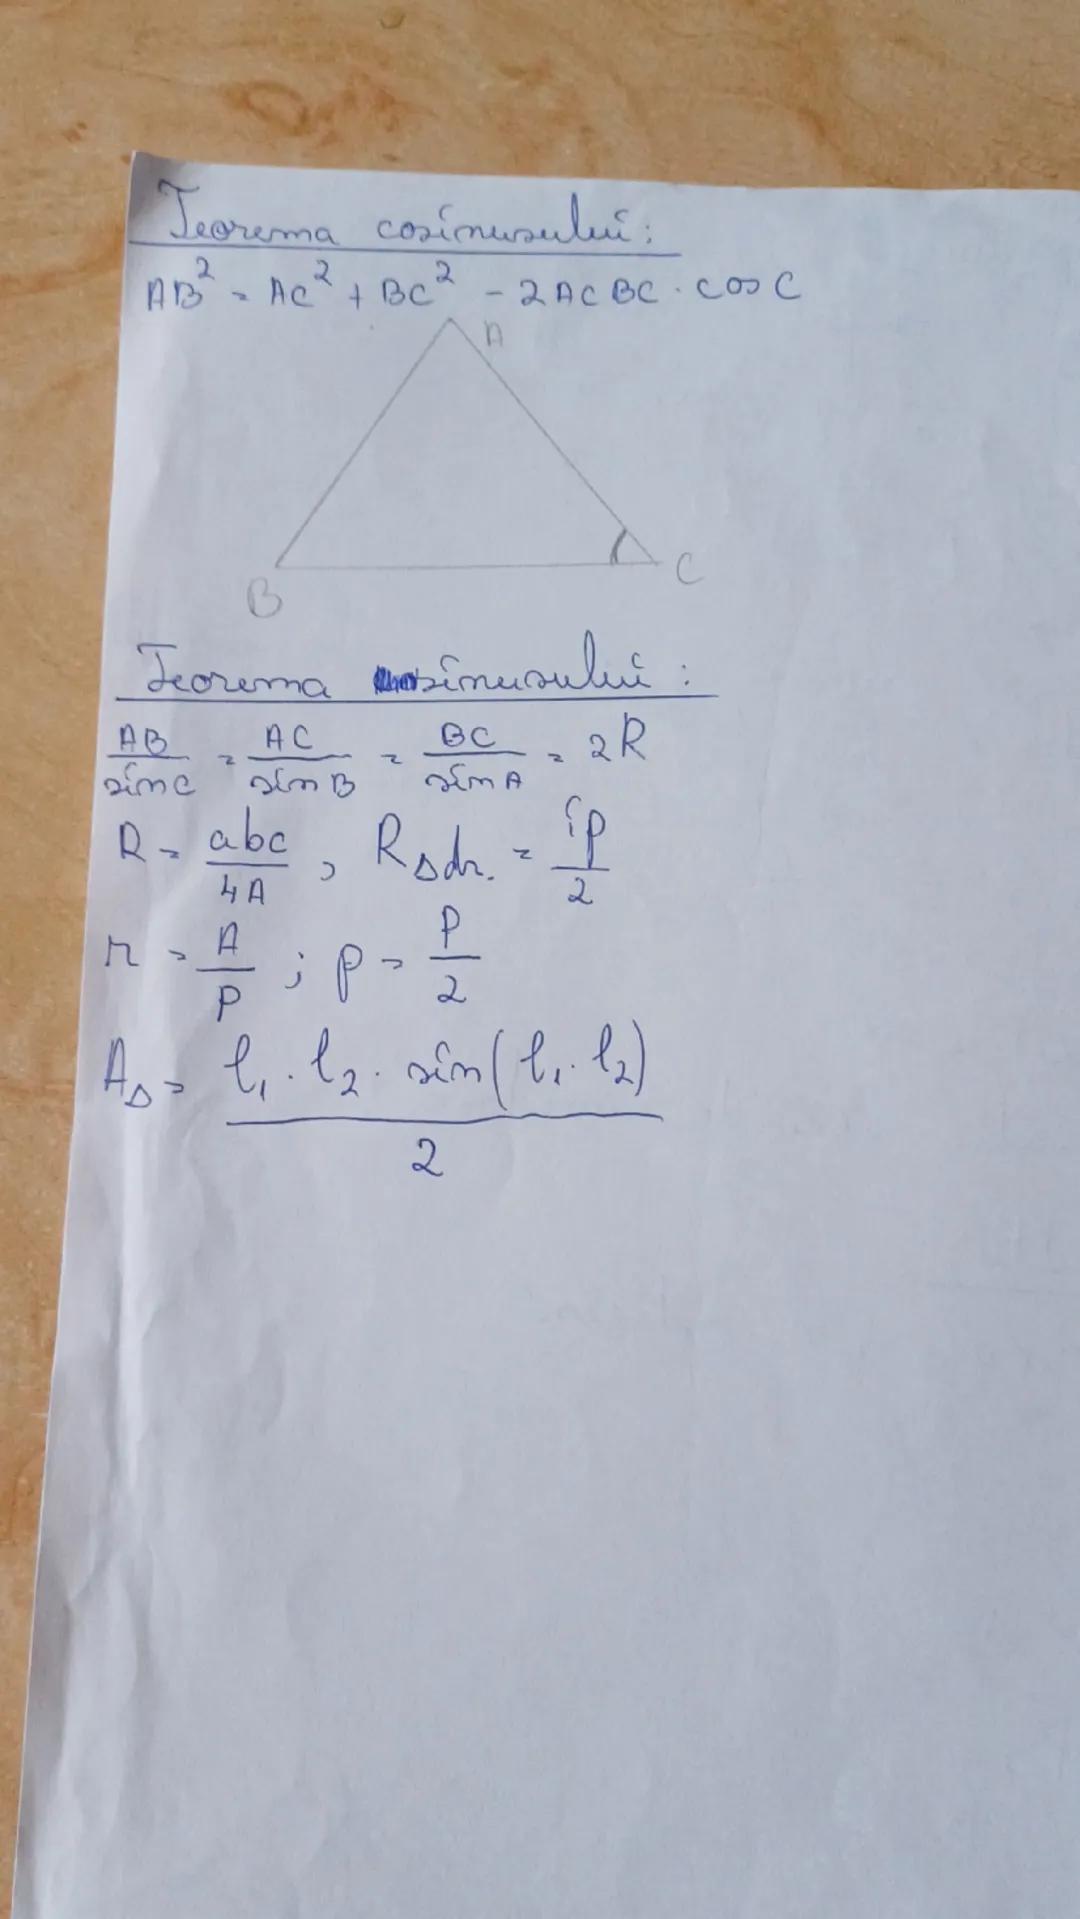 Teorema cosinusului:
AB² = AC² + BC² - 2AC BC · cos C
A
B
C
Teorema sinusului:
AB/sin C = AC/sin B = BC/sin A = 2R
R = abc/4A, R Δdr. = ip/2
r = A/p ; p = P/2
AΔ = l₁ · l₂ · sin(l₁ · l₂)/2